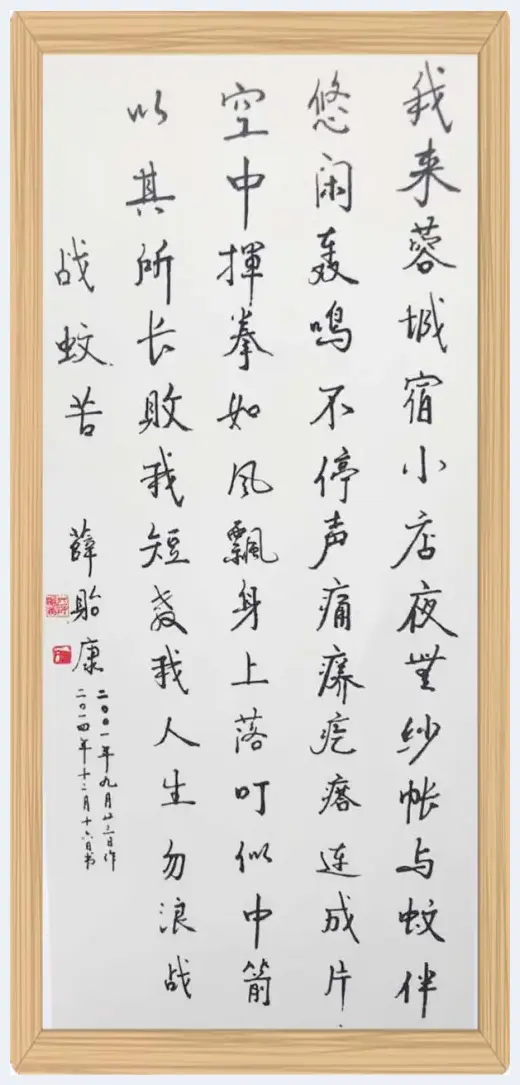 我来蓉城宿小店夜無纱帐与蚊伴
悠闲轰鸣不停声痛癢疙瘩连成片
空中揮拳如风飄身上落叮似中箭
以其所长敗我短教我人生勿浪战
战蚊苦 薛貽康
二〇〇一年九月廿三日作
二〇一四年十二月十六日书